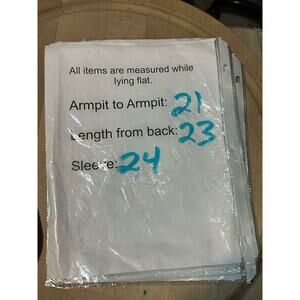 All items are measured while
lying flat.
Armpit to Armpit: 21
Length from back: 23
Sleeve: 24